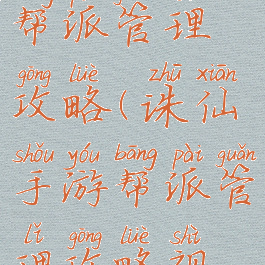 帮派管理
gōng lüè zhū xiān
攻略(诛仙
shǒu yóu bāng pài guǎn
手游帮派管
lǐ gōng lüè shì
理攻略视